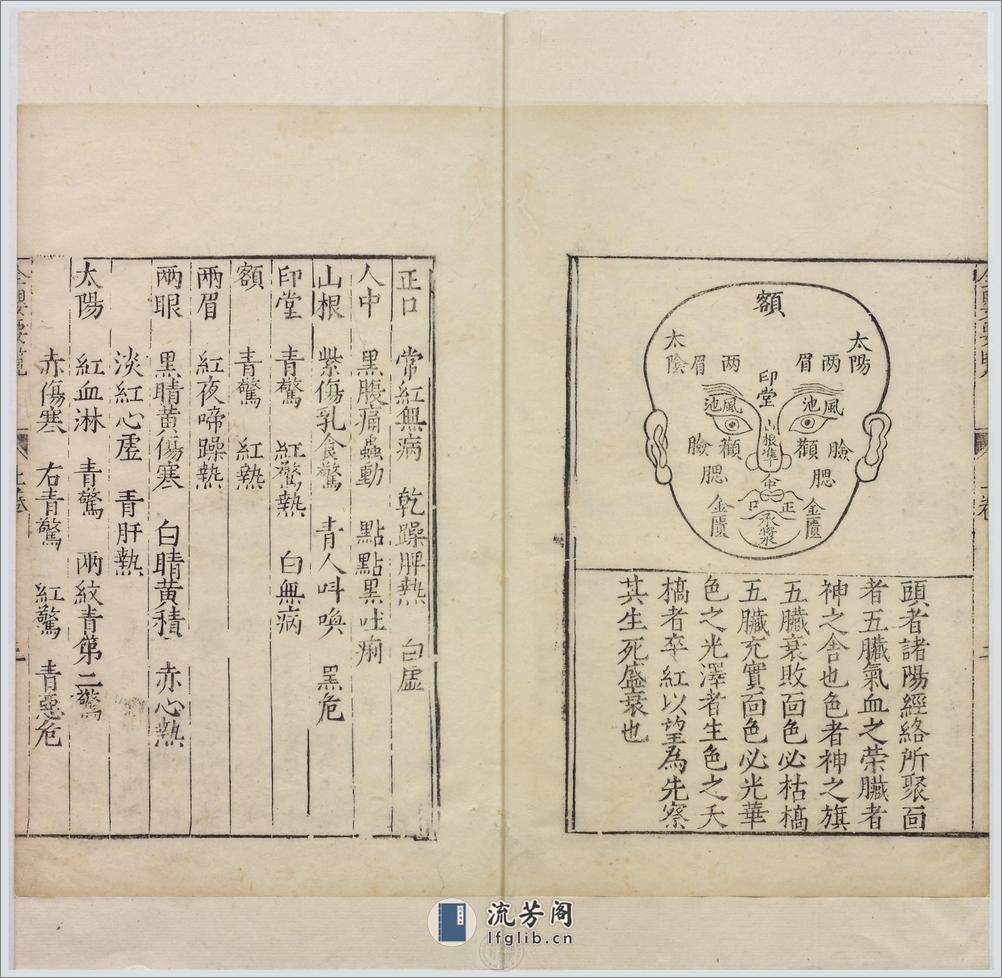 額
太陽
太陰
兩眉
兩眉
印堂
風池
風池
山根
準
顴
顴
臉
臉
腮
腮
中
正口
金匱
金匱
承漿
頭者諸陽經絡所聚面
者五臟氣血之榮臟者
神之舍也色者神之旗
五臟衰敗面色必枯槁
五臟充實面色必光華
色之光澤者生色之夭
槁者卒紅以望為先察
其生死盛衰也
上卷
二
正口 常紅無病 乾躁脾熱 白虛
人中 黑腹痛蟲動 點點黑吐痢
山根 紫傷乳食驚 青人呌喚 黑危
印堂 青驚 紅驚熱 白無病
額 青驚 紅熱
兩眉 紅夜啼躁熱
兩眼 黑睛黃傷寒 白睛黃積 赤心熱
淡紅心虛 青肝熱
太陽 紅血淋 青驚 兩紋青第二驚
赤傷寒 右青驚 紅驚 青惡危
流芳阁
lfglib.cn